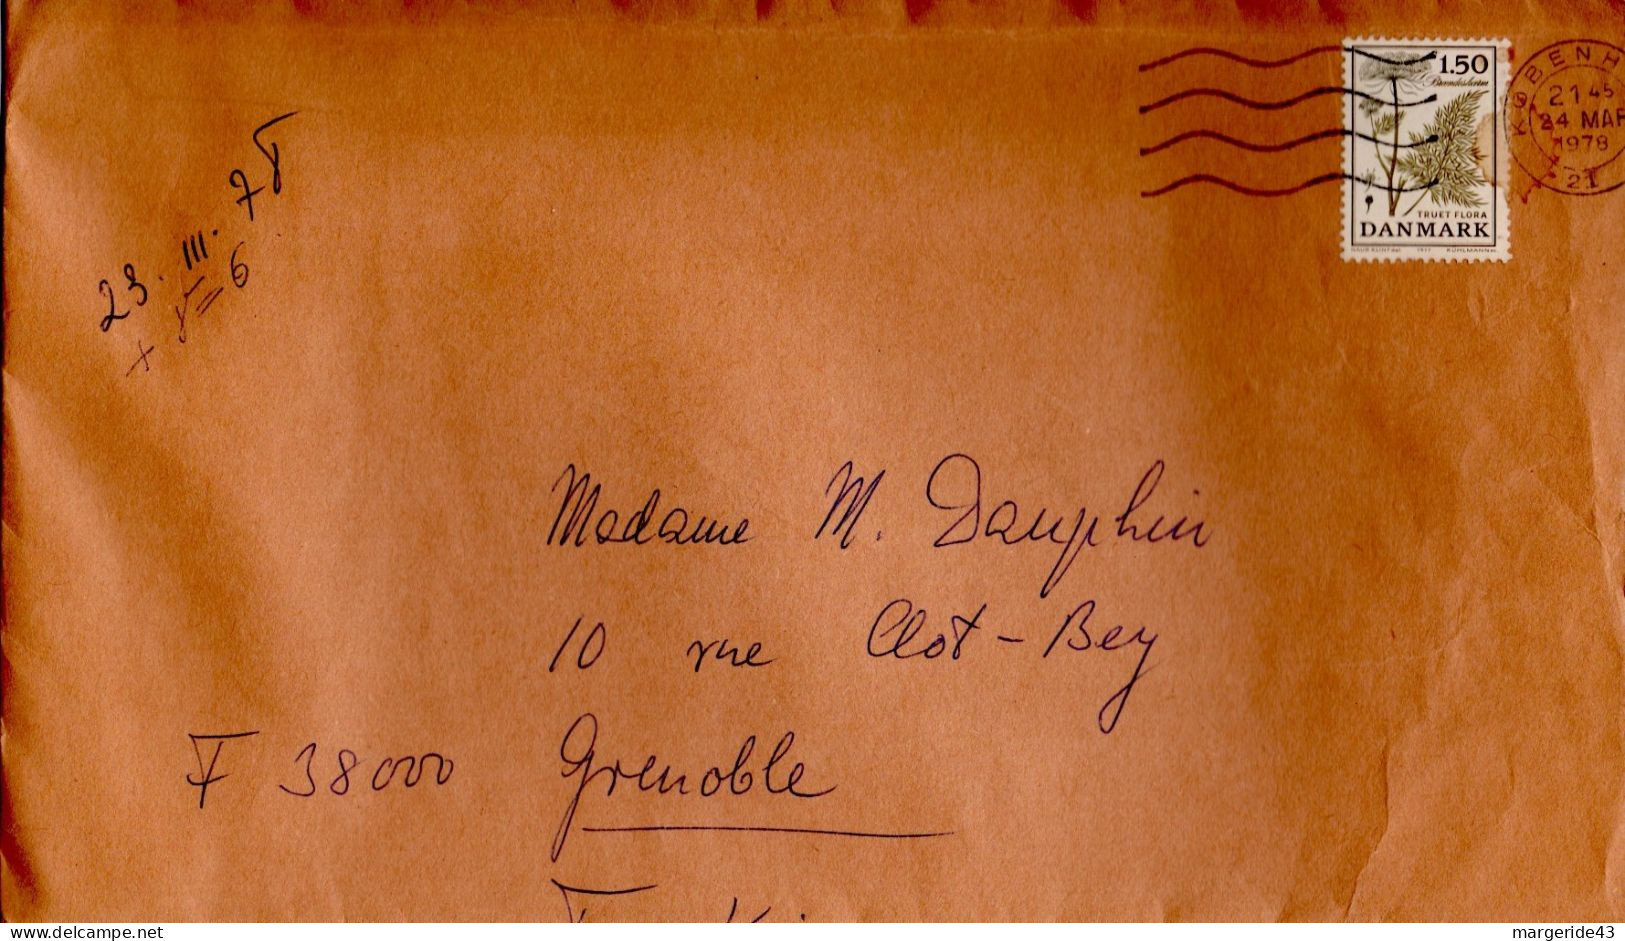 1.50
Brændeskærm
TRUET FLORA
DANMARK
KØBENH
21 45
24 MAR
1978
21
23. III. 78
+ 6
Madame M. Dauphin
10 rue Clot-Bey
F 38000 Grenoble
delcampe.net
margeride43